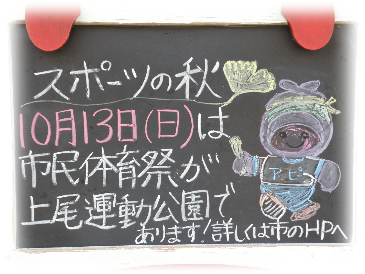 スポーツの秋
10月13日(日)は
市民体育祭が
上尾運動公園で
あります!詳しくは市のHPへ
アピー